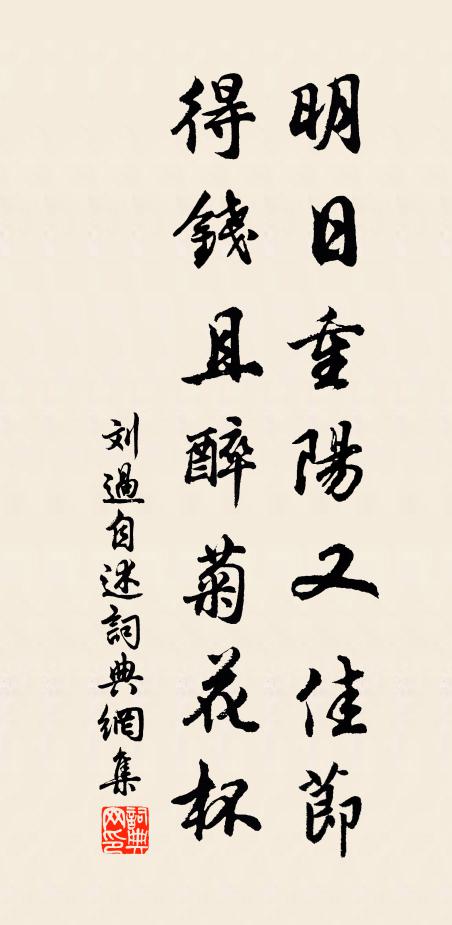 明日重陽又佳節
得錢且醉菊花杯
刘過自述詞典網集
詞典
网印